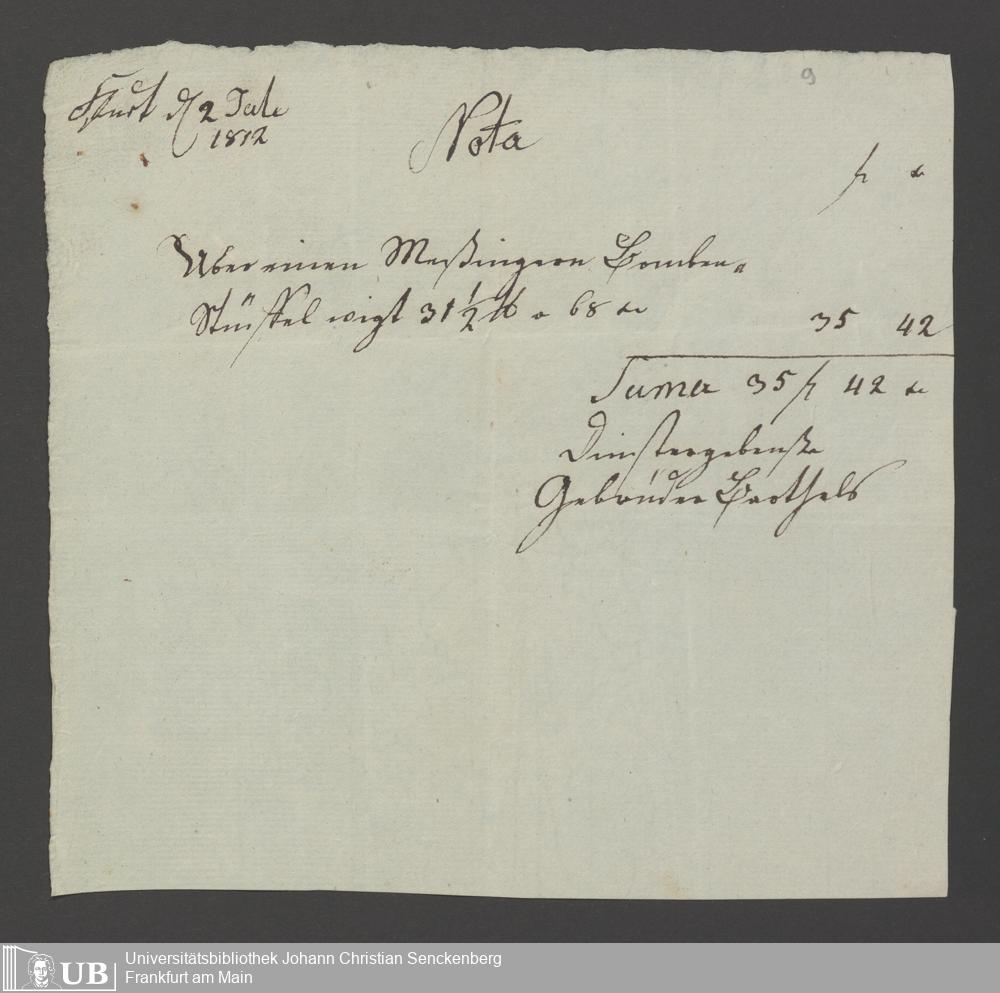 9
Ffurt d 2 Jule
1812
Nota
fl xr
Über einen Meßingern Bomben„
Stüffel wigt 31 1/2 ℔ a 68 xr 35 42
Suma 35 fl 42 xr
Dinstergebenste
Gebrüder Barthels
UB
Universitätsbibliothek Johann Christian Senckenberg
Frankfurt am Main